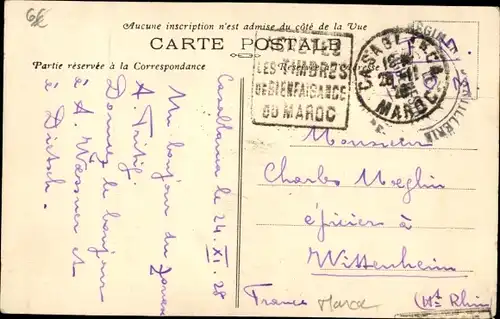 6€
Aucune inscription n'est admise du côté de la Vue
CARTE POSTALE
Partie réservée à la Correspondance
Casablanca le 24 XI. 28
Un bonjour du Maroc
A. Fritig.
Donnez le bonjour
à A. Wessner et
à Dietsch.
LES TIMBRES
DE BIENFAISANCE
DU MAROC
CASABLANCA
MAROC
Monsieur
Charles Moeglin
épicier à
Wittenheim
(Ht Rhin)
France
Maroc